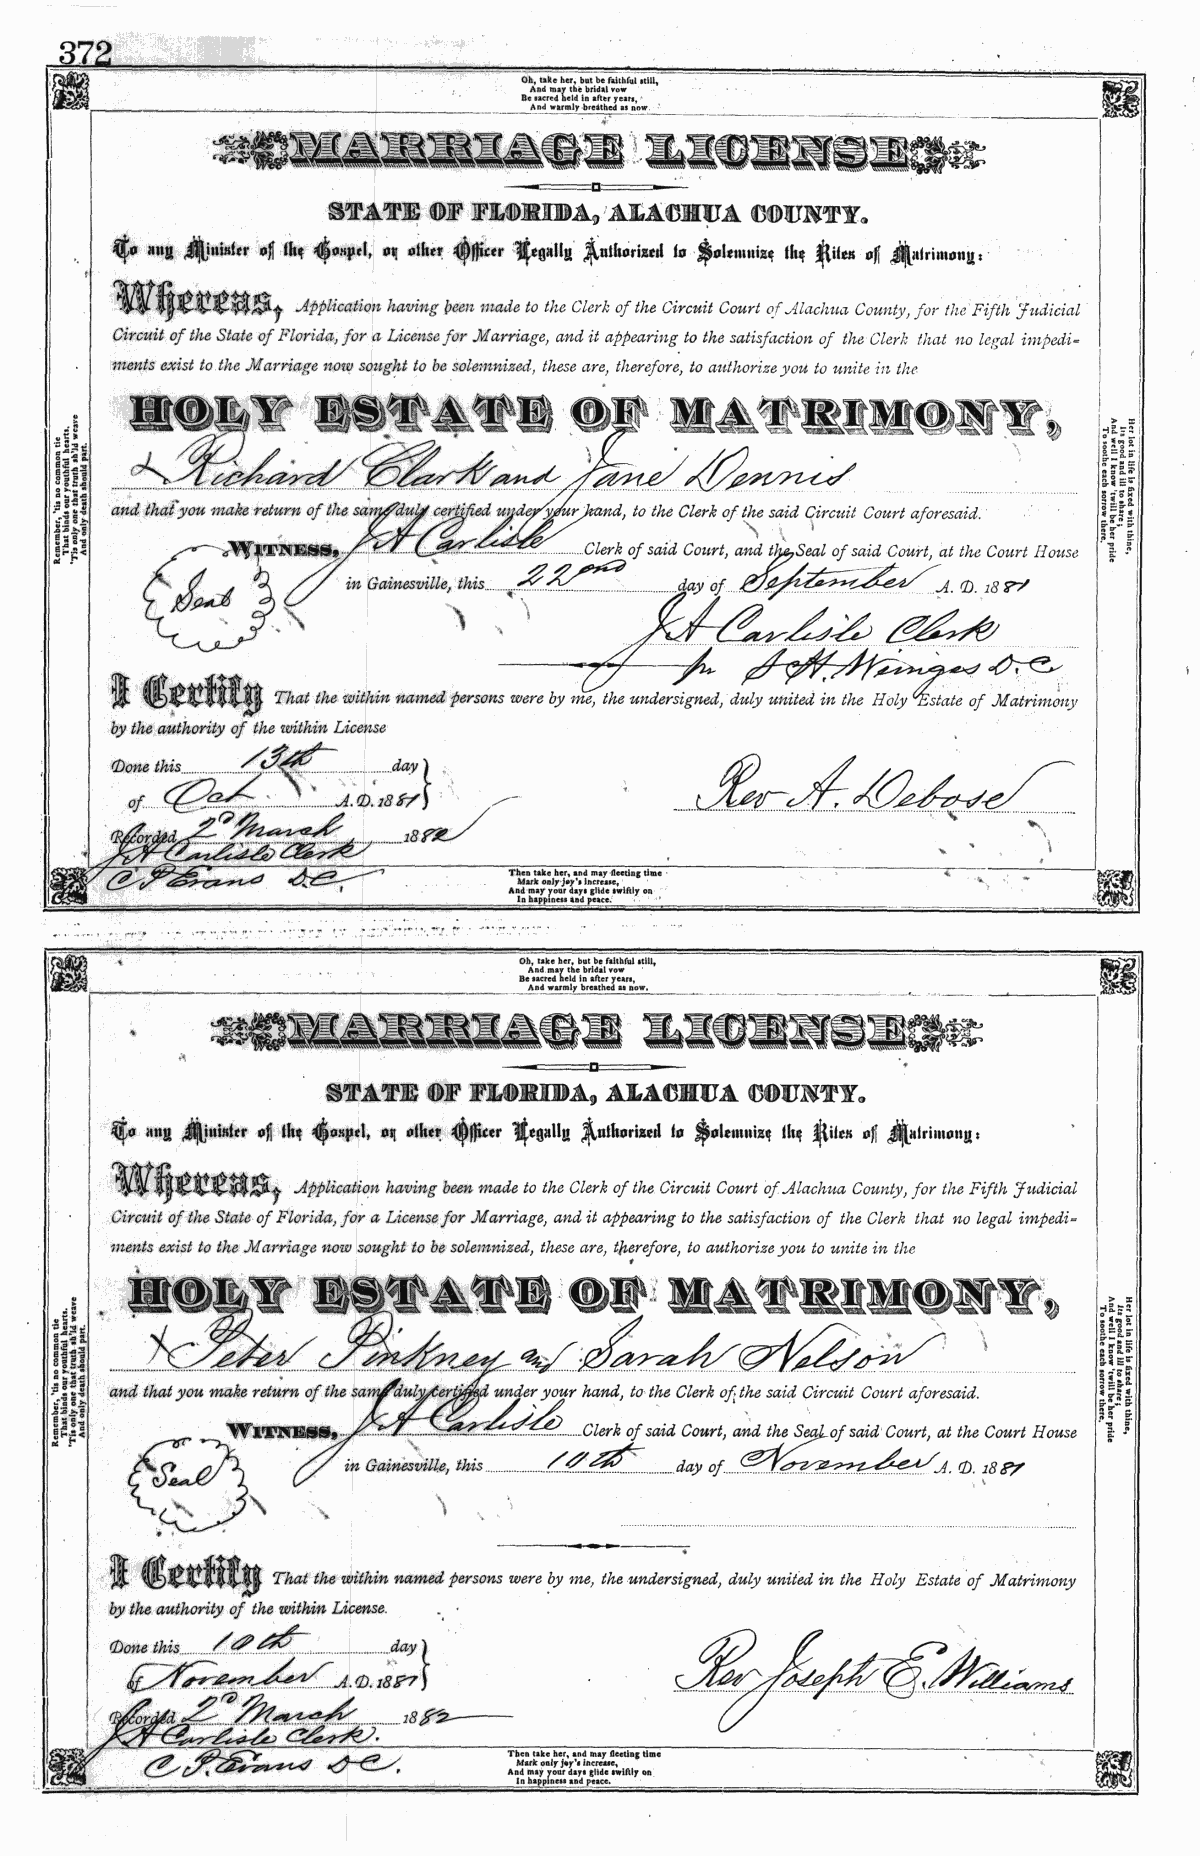 372
Oh, take her, but be faithful still,
And may the bridal vow
Be sacred held in after years,
And warmly breathed as now.
MARRIAGE LICENSE
STATE OF FLORIDA, ALACHUA COUNTY.
To any Minister of the Gospel, or other Officer Legally Authorized to Solemnize the Rites of Matrimony:
Whereas, Application having been made to the Clerk of the Circuit Court of Alachua County, for the Fifth Judicial
Circuit of the State of Florida, for a License for Marriage, and it appearing to the satisfaction of the Clerk that no legal impedi=
ments exist to the Marriage now sought to be solemnized, these are, therefore, to authorize you to unite in the
HOLY ESTATE OF MATRIMONY,
x Richard Clark and Jane Dennis
and that you make return of the same duly certified under your hand, to the Clerk of the said Circuit Court aforesaid.
WITNESS, J A Carlisle Clerk of said Court, and the Seal of said Court, at the Court House
Seal
in Gainesville, this 22nd day of September A. D. 1881
J A Carlisle Clerk
pr S H. Wienges D.C
I Certify That the within named persons were by me, the undersigned, duly united in the Holy Estate of Matrimony
by the authority of the within License
Done this 13th day
of Oct A.D. 1881
Rev A. Debose
Recorded 2d March 1882
J A Carlisle Clerk
C P Evans D.C.
Remember, 'tis no common tie
That binds our youthful hearts,
'Tis only one that truth sh'ld weave
And only death should part.
Her lot in life is fixed with thine,
Its good and ill to share;
And well I know 'twill be her pride
To soothe each sorrow there.
Then take her, and may fleeting time
Mark only joy's increase,
And may your days glide swiftly on
In happiness and peace.
Oh, take her, but be faithful still,
And may the bridal vow
Be sacred held in after years,
And warmly breathed as now.
MARRIAGE LICENSE
STATE OF FLORIDA, ALACHUA COUNTY.
To any Minister of the Gospel, or other Officer Legally Authorized to Solemnize the Rites of Matrimony:
Whereas, Application having been made to the Clerk of the Circuit Court of Alachua County, for the Fifth Judicial
Circuit of the State of Florida, for a License for Marriage, and it appearing to the satisfaction of the Clerk that no legal impedi=
ments exist to the Marriage now sought to be solemnized, these are, therefore, to authorize you to unite in the
HOLY ESTATE OF MATRIMONY,
x Peter Pinkney and Sarah Nelson
and that you make return of the same duly certified under your hand, to the Clerk of the said Circuit Court aforesaid.
WITNESS, J A Carlisle Clerk of said Court, and the Seal of said Court, at the Court House
Seal
in Gainesville, this 10th day of November A. D. 1881
I Certify That the within named persons were by me, the undersigned, duly united in the Holy Estate of Matrimony
by the authority of the within License.
Done this 10th day
of November A.D. 1881
Rev Joseph E. Williams
Recorded 2d March 1882
J A Carlisle Clerk.
C P. Evans D C.
Remember, 'tis no common tie
That binds our youthful hearts.
'Tis only one that truth sh'ld weave
And only death should part.
Her lot in life is fixed with thine,
Its good and ill to share;
And well I know 'twill be her pride
To soothe each sorrow there.
Then take her, and may fleeting time
Mark only joy's increase,
And may your days glide swiftly on
In happiness and peace.